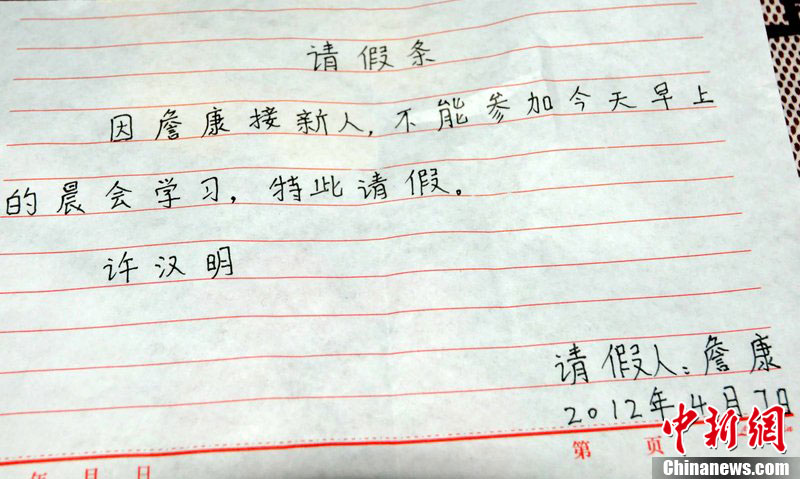 请假条
因詹康接新人,不能参加今天早上
的晨会学习,特此请假。
许汉明
请假人:詹康
2012年4月7日
第 页
年 月 日
中新网
Chinanews.com